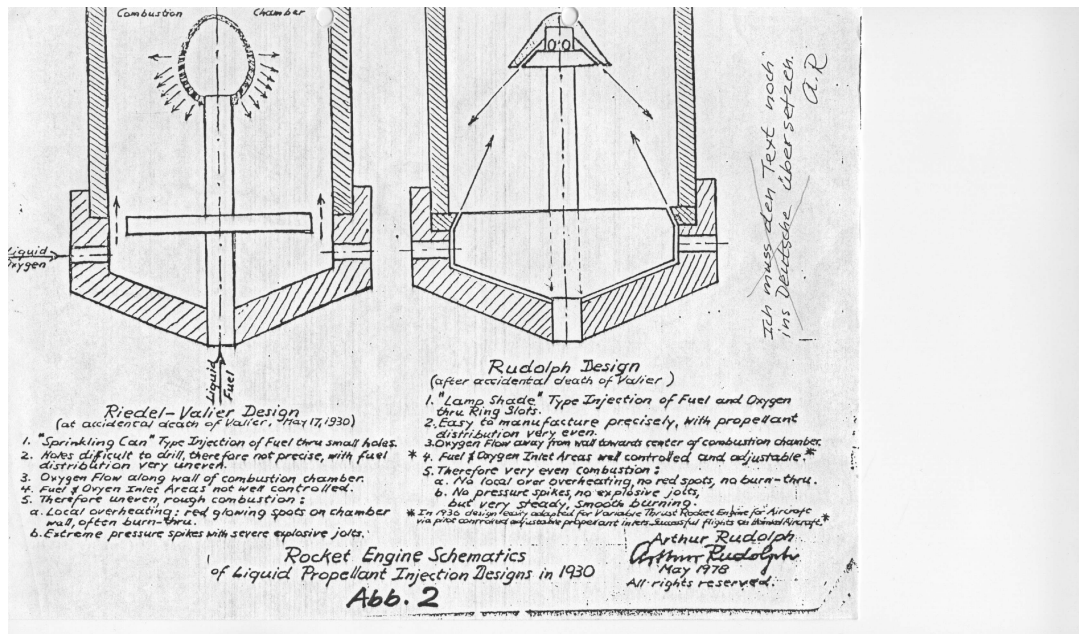 Combustion Chamber
Liquid
Oxygen
Liquid
Fuel
Riedel-Valier Design
(at accidental death of Valier, May 17, 1930)
1. "Sprinkling Can" Type Injection of Fuel thru small holes.
2. Holes difficult to drill, therefore not precise, with fuel
distribution very uneven.
3. Oxygen Flow along wall of combustion chamber.
4. Fuel & Oxyen Inlet Areas not well controlled.
5. Therefore uneven, rough combustion:
a. Local overheating: red glowing spots on chamber
wall, often burn-thru.
b. Extreme pressure spikes with severe explosive jolts.
Rudolph Design
(after accidental death of Valier)
1. "Lamp Shade" Type Injection of Fuel and Oxygen
thru Ring Slots.
2. Easy to manufacture precisely, with propellant
distribution very even.
3. Oxygen Flow away from wall towards center of combustion chamber.
* 4. Fuel & Oxygen Inlet Areas well controlled and adjustable.*
5. Therefore very even combustion:
a. No local over overheating, no red spots, no burn-thru.
b. No pressure spikes, no explosive jolts,
but very steady, smooth burning.
* In 1936 design easily adapted for Variable Thrust Rocket Engine for Aircraft
via pilot controlled adjustable propellant inlets. Successful flights on Aircraft.*
Arthur Rudolph
Arthur Rudolph
May 1978
All rights reserved.
Rocket Engine Schematics
of Liquid Propellant Injection Designs in 1930
Abb. 2
Ich muss den Text noch
ins Deutsche übersetzen.
! A.R